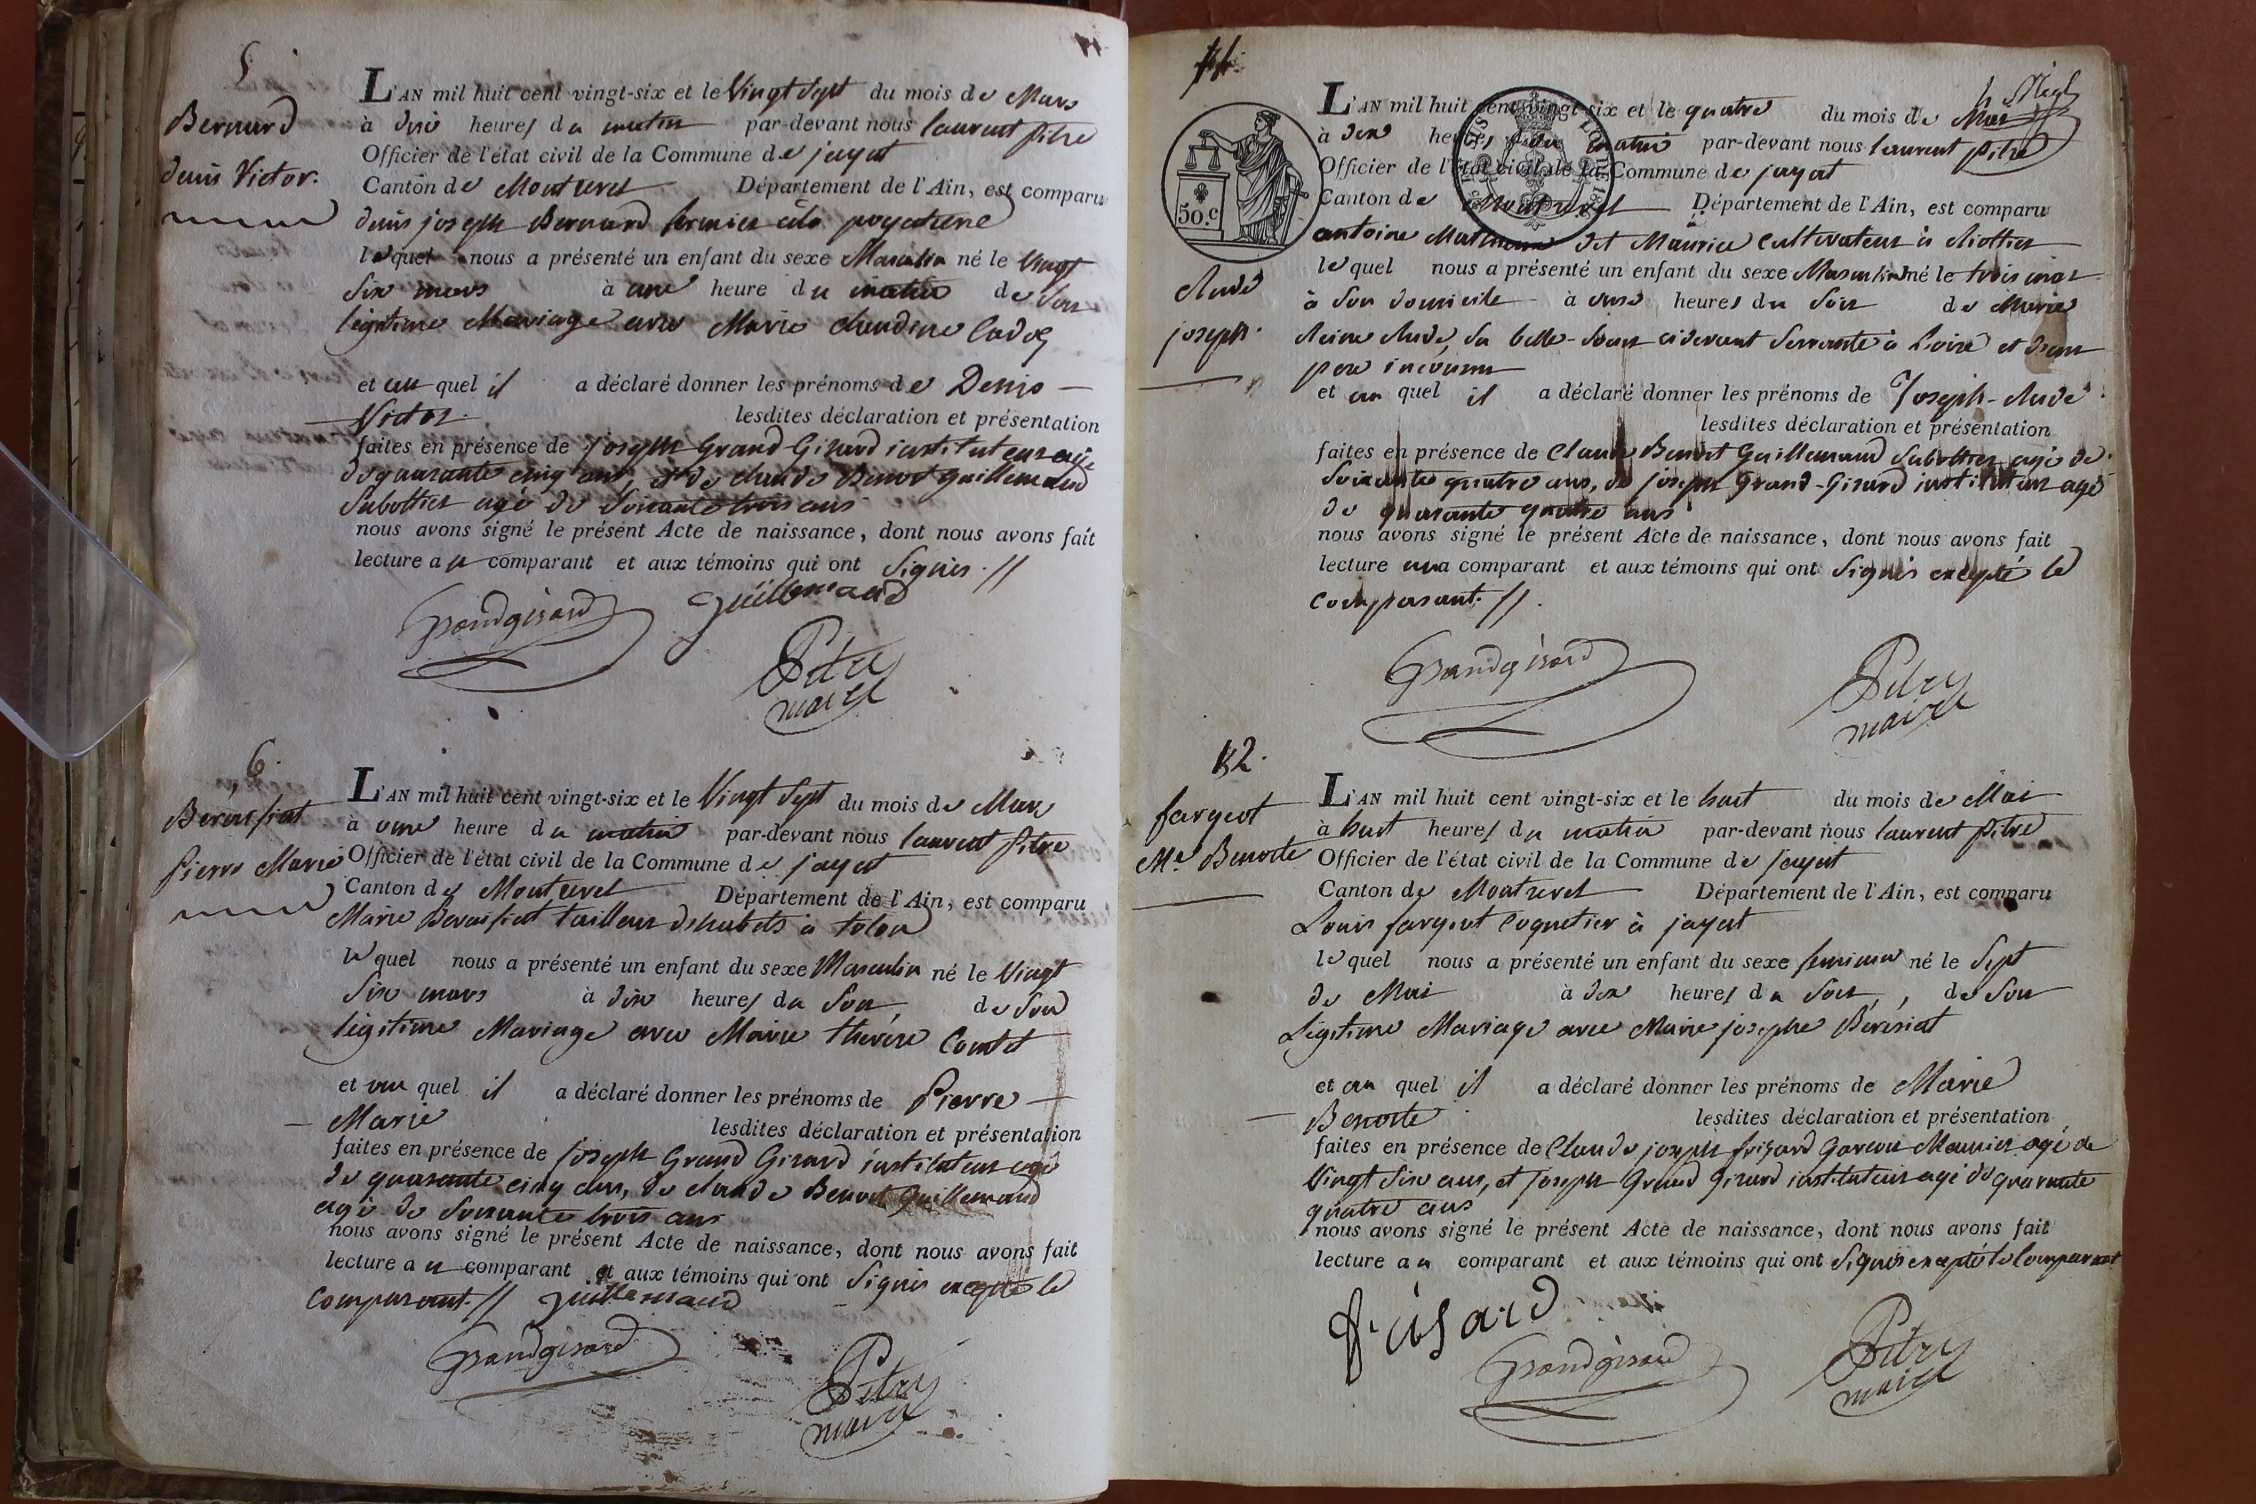 5
Bernard
denis Victor.
L'AN mil huit cent vingt-six et le Vingt Sept du mois de Mars
à dix heures du matin par-devant nous laurent pitre
Officier de l'état civil de la Commune de jayat
Canton de Montrevel Département de l'Ain, est comparu
denis joseph Bernard fermier à la
lequel nous a présenté un enfant du sexe Masculin né le Vingt
Six mars à une heure du matin de Son
légitime Mariage avec Marie claudine
et au quel il a déclaré donner les prénoms de Denis
Victor. lesdites déclaration et présentation
faites en présence de joseph Grand Girard instituteur agé
de quarante cinq ans, et de claude Benoit guillemaud
Sabottier agé de Soixante trois ans
nous avons signé le présent Acte de naissance, dont nous avons fait
lecture au comparant et aux témoins qui ont Signés. //
Grandgirard guillemaud
Pitre
maire
6.
Béreisiat
Pierre Marie
L'AN mil huit cent vingt-six et le Vingt Sept du mois de Mars
à onze heure du matin par-devant nous laurent pitre
Officier de l'état civil de la Commune de jayat
Canton de Montrevel Département de l'Ain, est comparu
Marie Béreisiat tailleur d'habits à
le quel nous a présenté un enfant du sexe Masculin né le Vingt
Six mars à dix heures du Soir, de Son
légitime Mariage avec Marie thérèse Comtet
et au quel il a déclaré donner les prénoms de Pierre
Marie lesdites déclaration et présentation
faites en présence de joseph Grand Girard instituteur agé
de quarante cinq ans, de claude Benoit Guillemaud
agé de Soixante trois ans
nous avons signé le présent Acte de naissance, dont nous avons fait
lecture au comparant et aux témoins qui ont Signés excepté le
comparant. // guillemaud
Grandgirard
Pitre
maire
50.c
joseph.
L'AN mil huit cent vingt-six et le quatre du mois de Mai
à dix heures du matin par-devant nous laurent pitre
Officier de l'état civil de la Commune de jayat
Canton de Montrevel Département de l'Ain, est comparu
antoine dit Maurice cultivateur à
le quel nous a présenté un enfant du sexe Masculin né le trois mai
à Son domicile à onze heures du Soir de Marie
Sa belle-Soeur cidevant Servante à et d'un
père inconnu
et au quel il a déclaré donner les prénoms de Joseph
lesdites déclaration et présentation
faites en présence de Claude Benoit Guillemaud Sabottier agé de
Soixante quatre ans, de joseph Grand-Girard instituteur agé
de quarante quatre ans
nous avons signé le présent Acte de naissance, dont nous avons fait
lecture au comparant et aux témoins qui ont Signés excepté le
comparant. //.
Grandgirard
Pitre
maire
fargeot
Me. Benoite
L'AN mil huit cent vingt-six et le huit du mois de Mai
à huit heures du matin par-devant nous laurent pitre
Officier de l'état civil de la Commune de jayat
Canton de Montrevel Département de l'Ain, est comparu
Louis fargeot coquetier à jayat
le quel nous a présenté un enfant du sexe feminin né le Sept
de Mai à dix heures du Soir, de Son
Légitime Mariage avec Marie josephe Bérésiat
et au quel il a déclaré donner les prénoms de Marie
Benoite lesdites déclaration et présentation
faites en présence de Claude joseph frisard Garçon Meunier agé de
Vingt Six ans, et joseph Grand Girard instituteur agé de quarante
quatre ans
nous avons signé le présent Acte de naissance, dont nous avons fait
lecture au comparant et aux témoins qui ont Signés excepté le comparant
frisard
Grandgirard
Pitre
maire